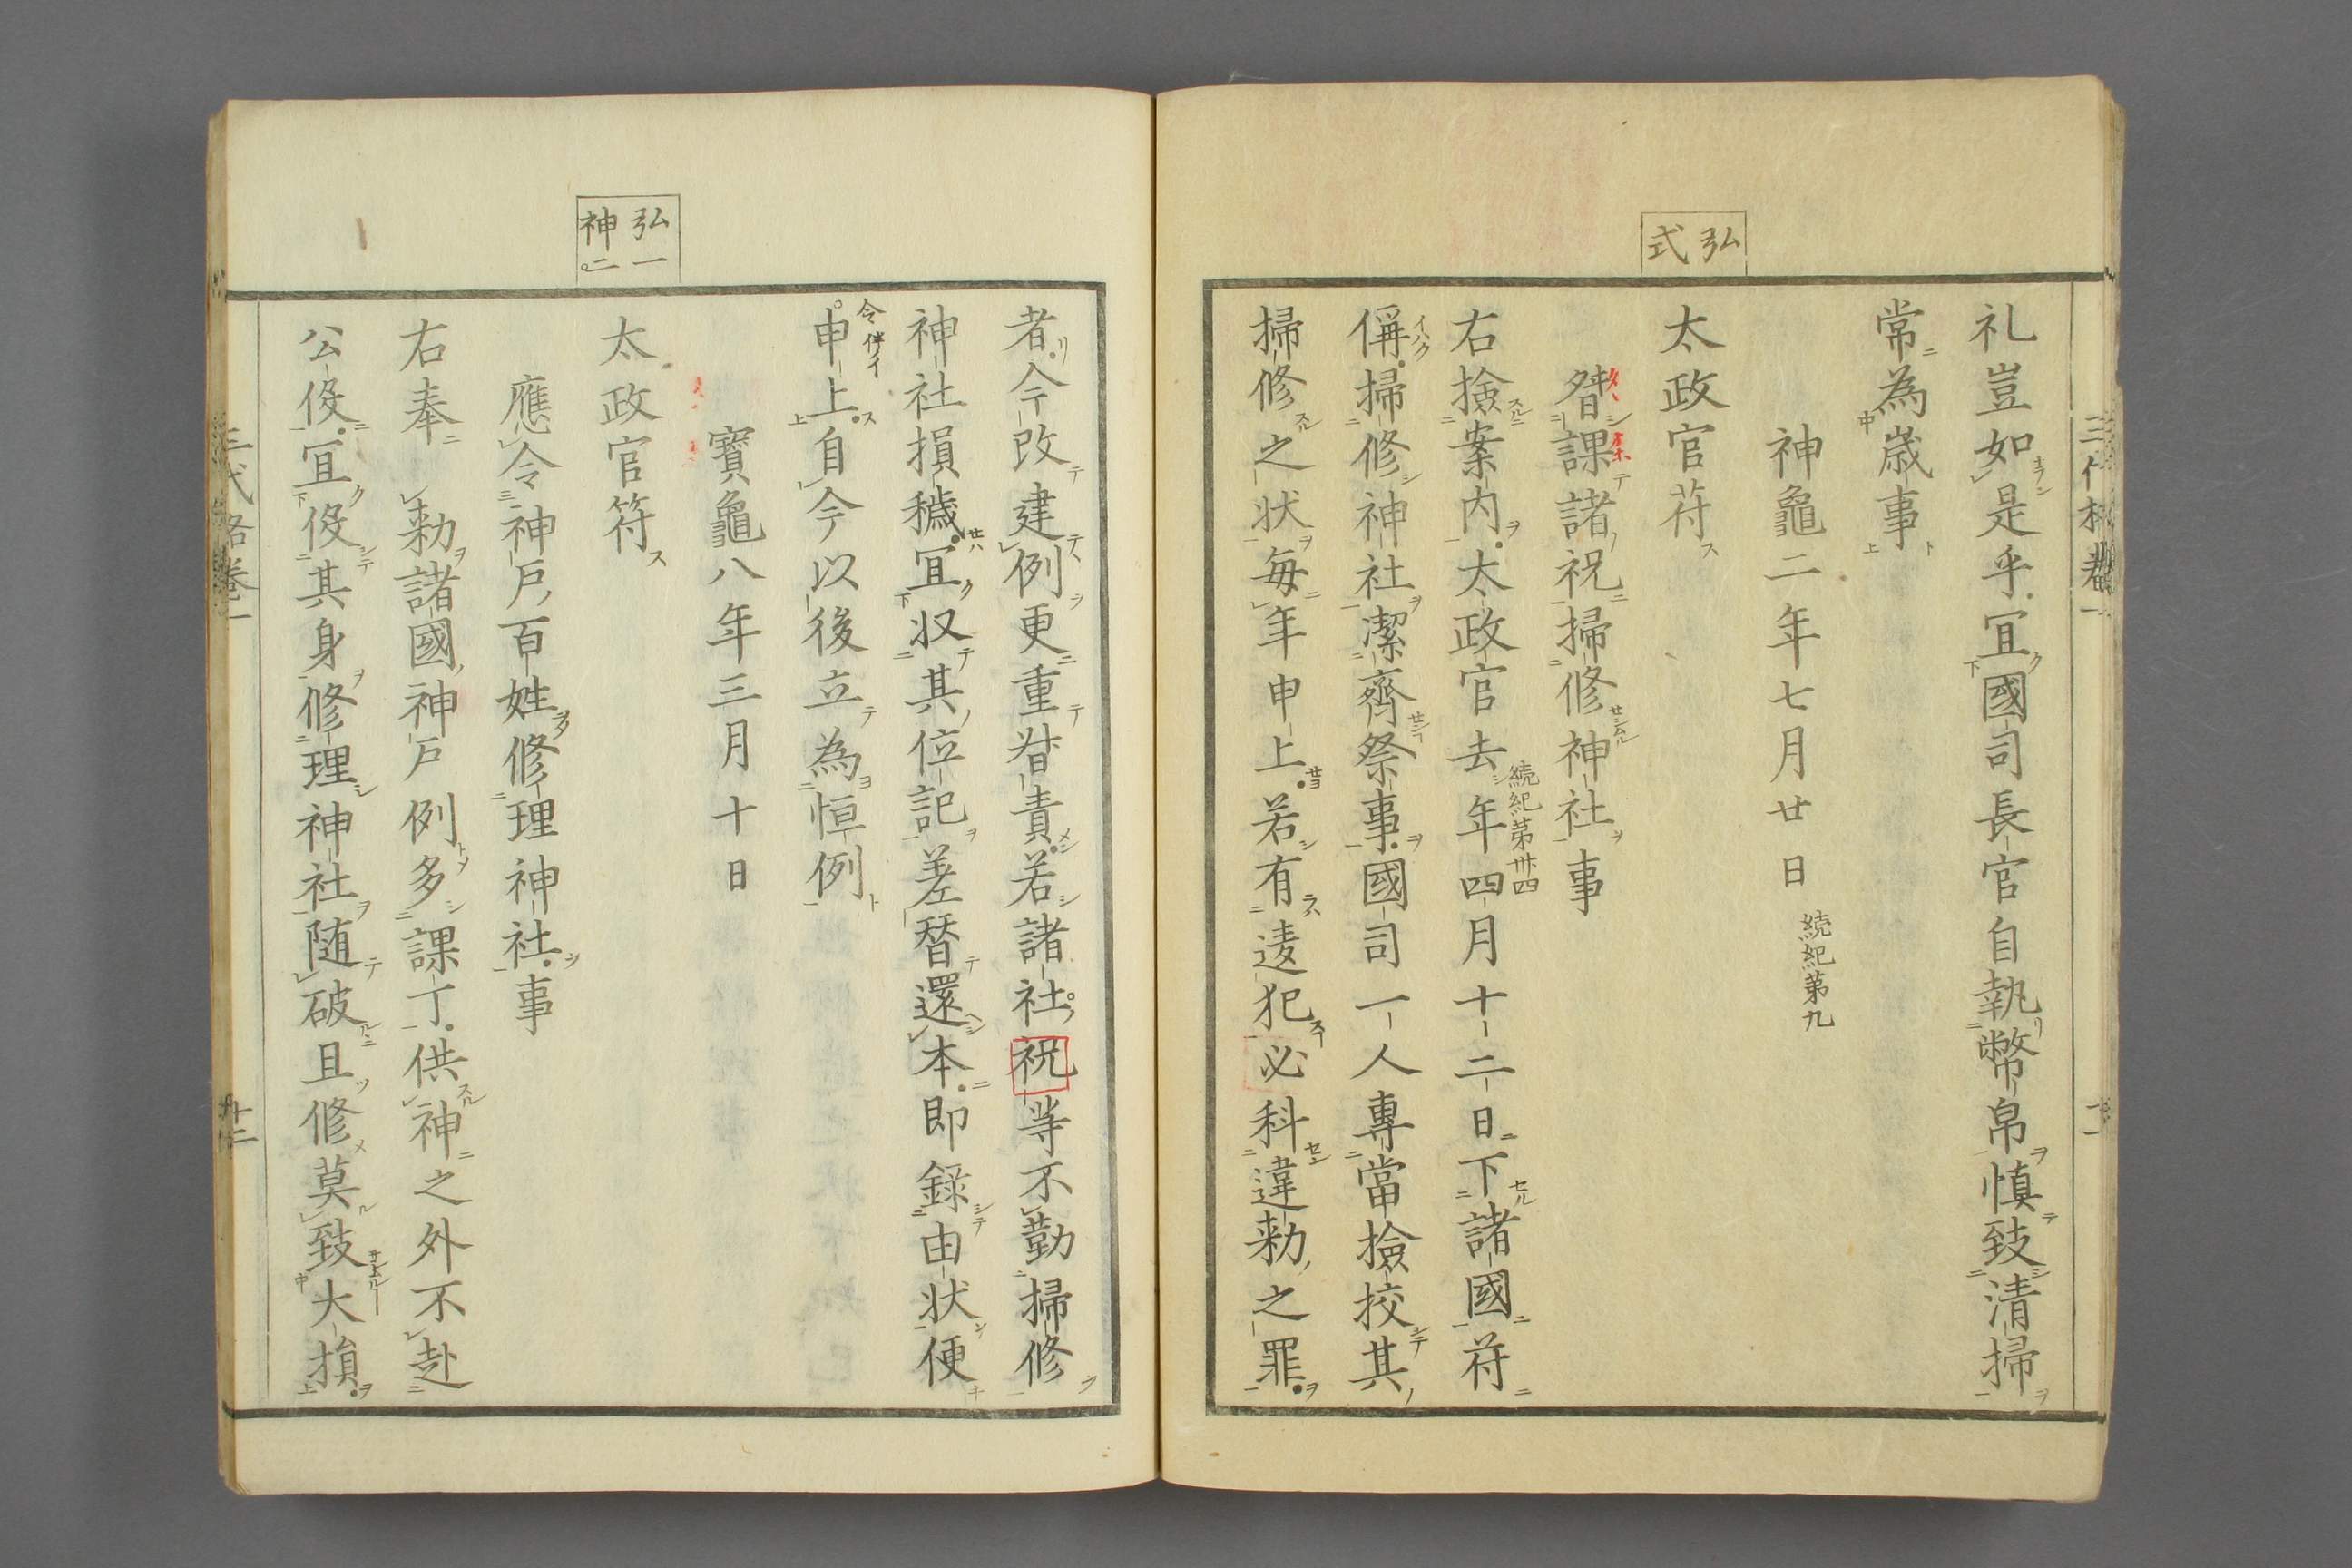 弘式
礼豈如是乎宜國司長官自執幣帛慎致清掃
常為歳事
神龜二年七月廿日 続紀第九
太政官苻
督課諸祝掃修神社事
右撿案内太政官去年四月十二日下諸國苻 続紀第卅四
偁掃修神社潔齊祭事國司一人專當撿挍其
掃修之状毎年申上若有違犯必科違勅之罪
弘一
神二
者今改建例更重督責若諸社祝等不勤掃修
神社損穢宜収其位記差替還本即錄由状便
令 伴イ
申上自今以後立為恒例
寳龜八年三月十日
太政官符
應令神戸百姓修理神社事
右奉 勅諸國神戸例多課丁供神之外不赴
公役宜役其身修理神社随破且修莫致大損
三代格卷一